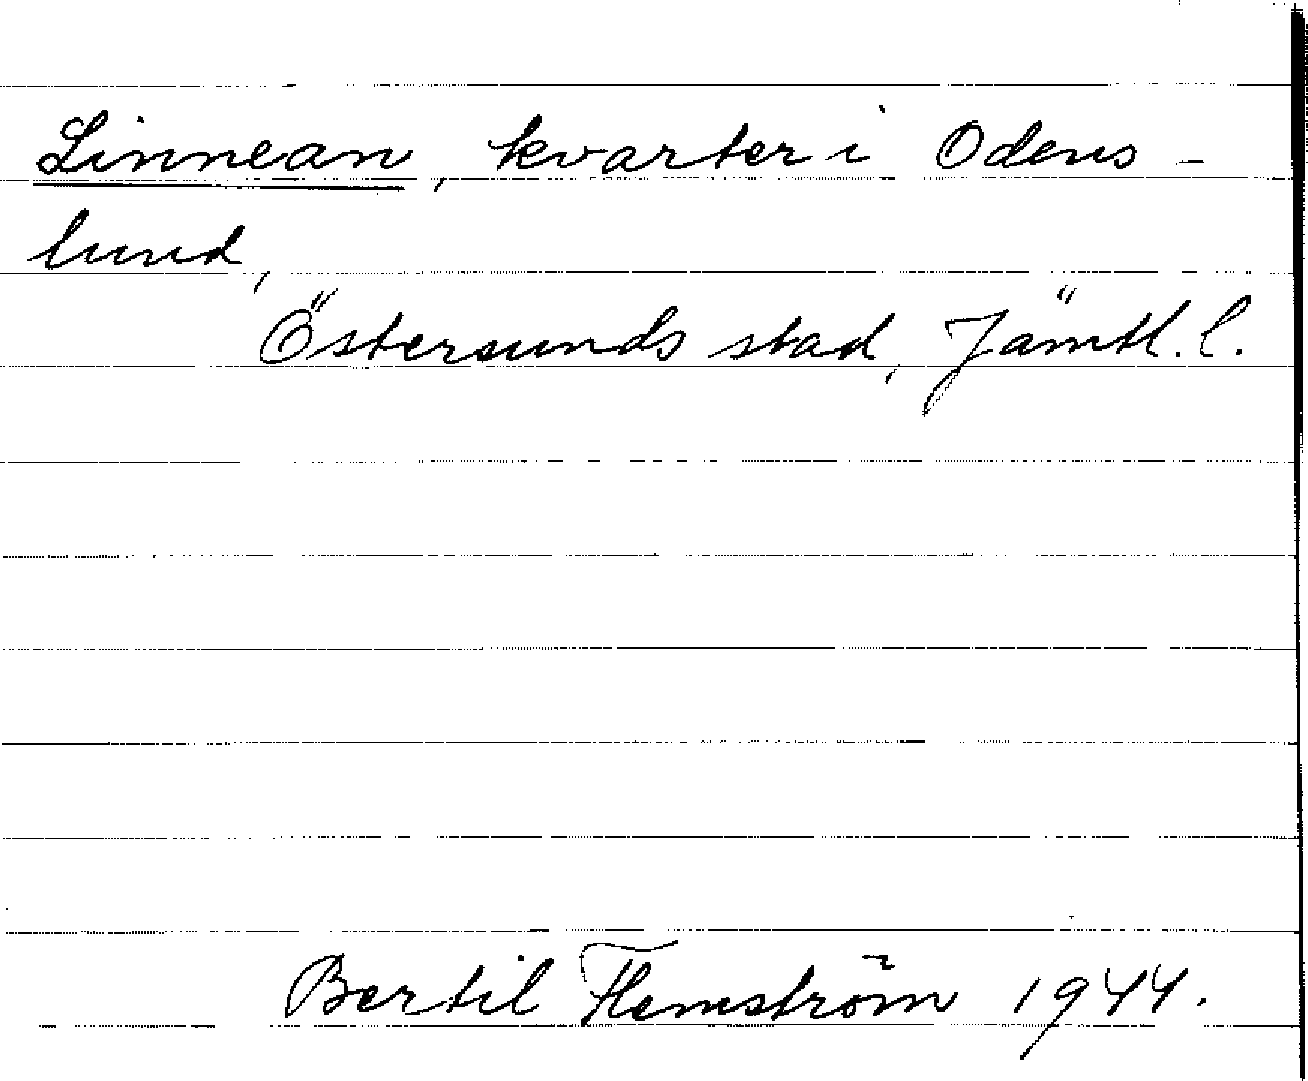 Linnean, kvarter i Odens-
lund,
Östersunds stad, Jämtl. l.
Bertil Flemström 1944.